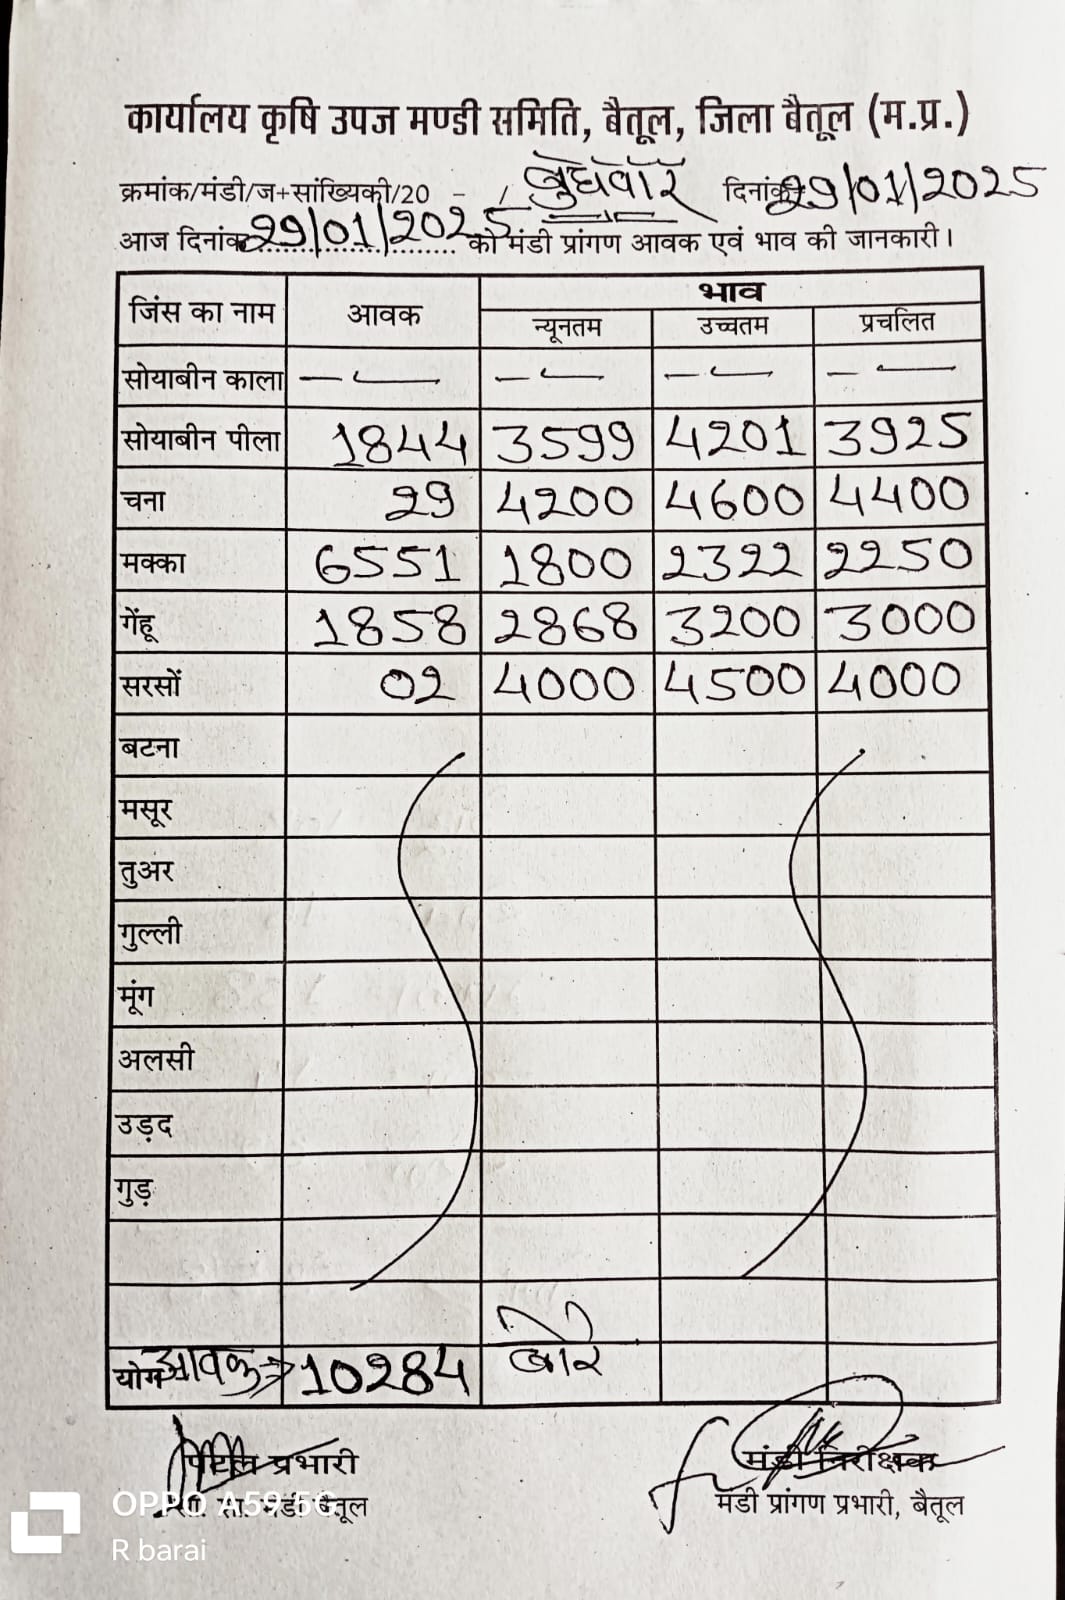 कार्यालय कृषि उपज मण्डी समिति, बैतूल, जिला बैतूल (म.प्र.)
क्रमांक/मंडी/ज+सांख्यिकी/20 - / बुधवार दिनांक 29/01/2025
आज दिनांक 29/01/2025 को मंडी प्रांगण आवक एवं भाव की जानकारी।
जिंस का नाम आवक भाव
न्यूनतम उच्चतम प्रचलित
सोयाबीन काला — — — —
सोयाबीन पीला 1844 3599 4201 3925
चना 29 4200 4600 4400
मक्का 6551 1800 2322 2250
गेंहू 1858 2868 3200 3000
सरसों 02 4000 4500 4000
बटना
मसूर
तुअर
गुल्ली
मूंग
अलसी
उड़द
गुड़
योग आवक → 10284 बोरे
प्रभारी मंडी निरीक्षक
मंडी बैतूल मंडी प्रांगण प्रभारी, बैतूल
OPPO A59 5G
R barai